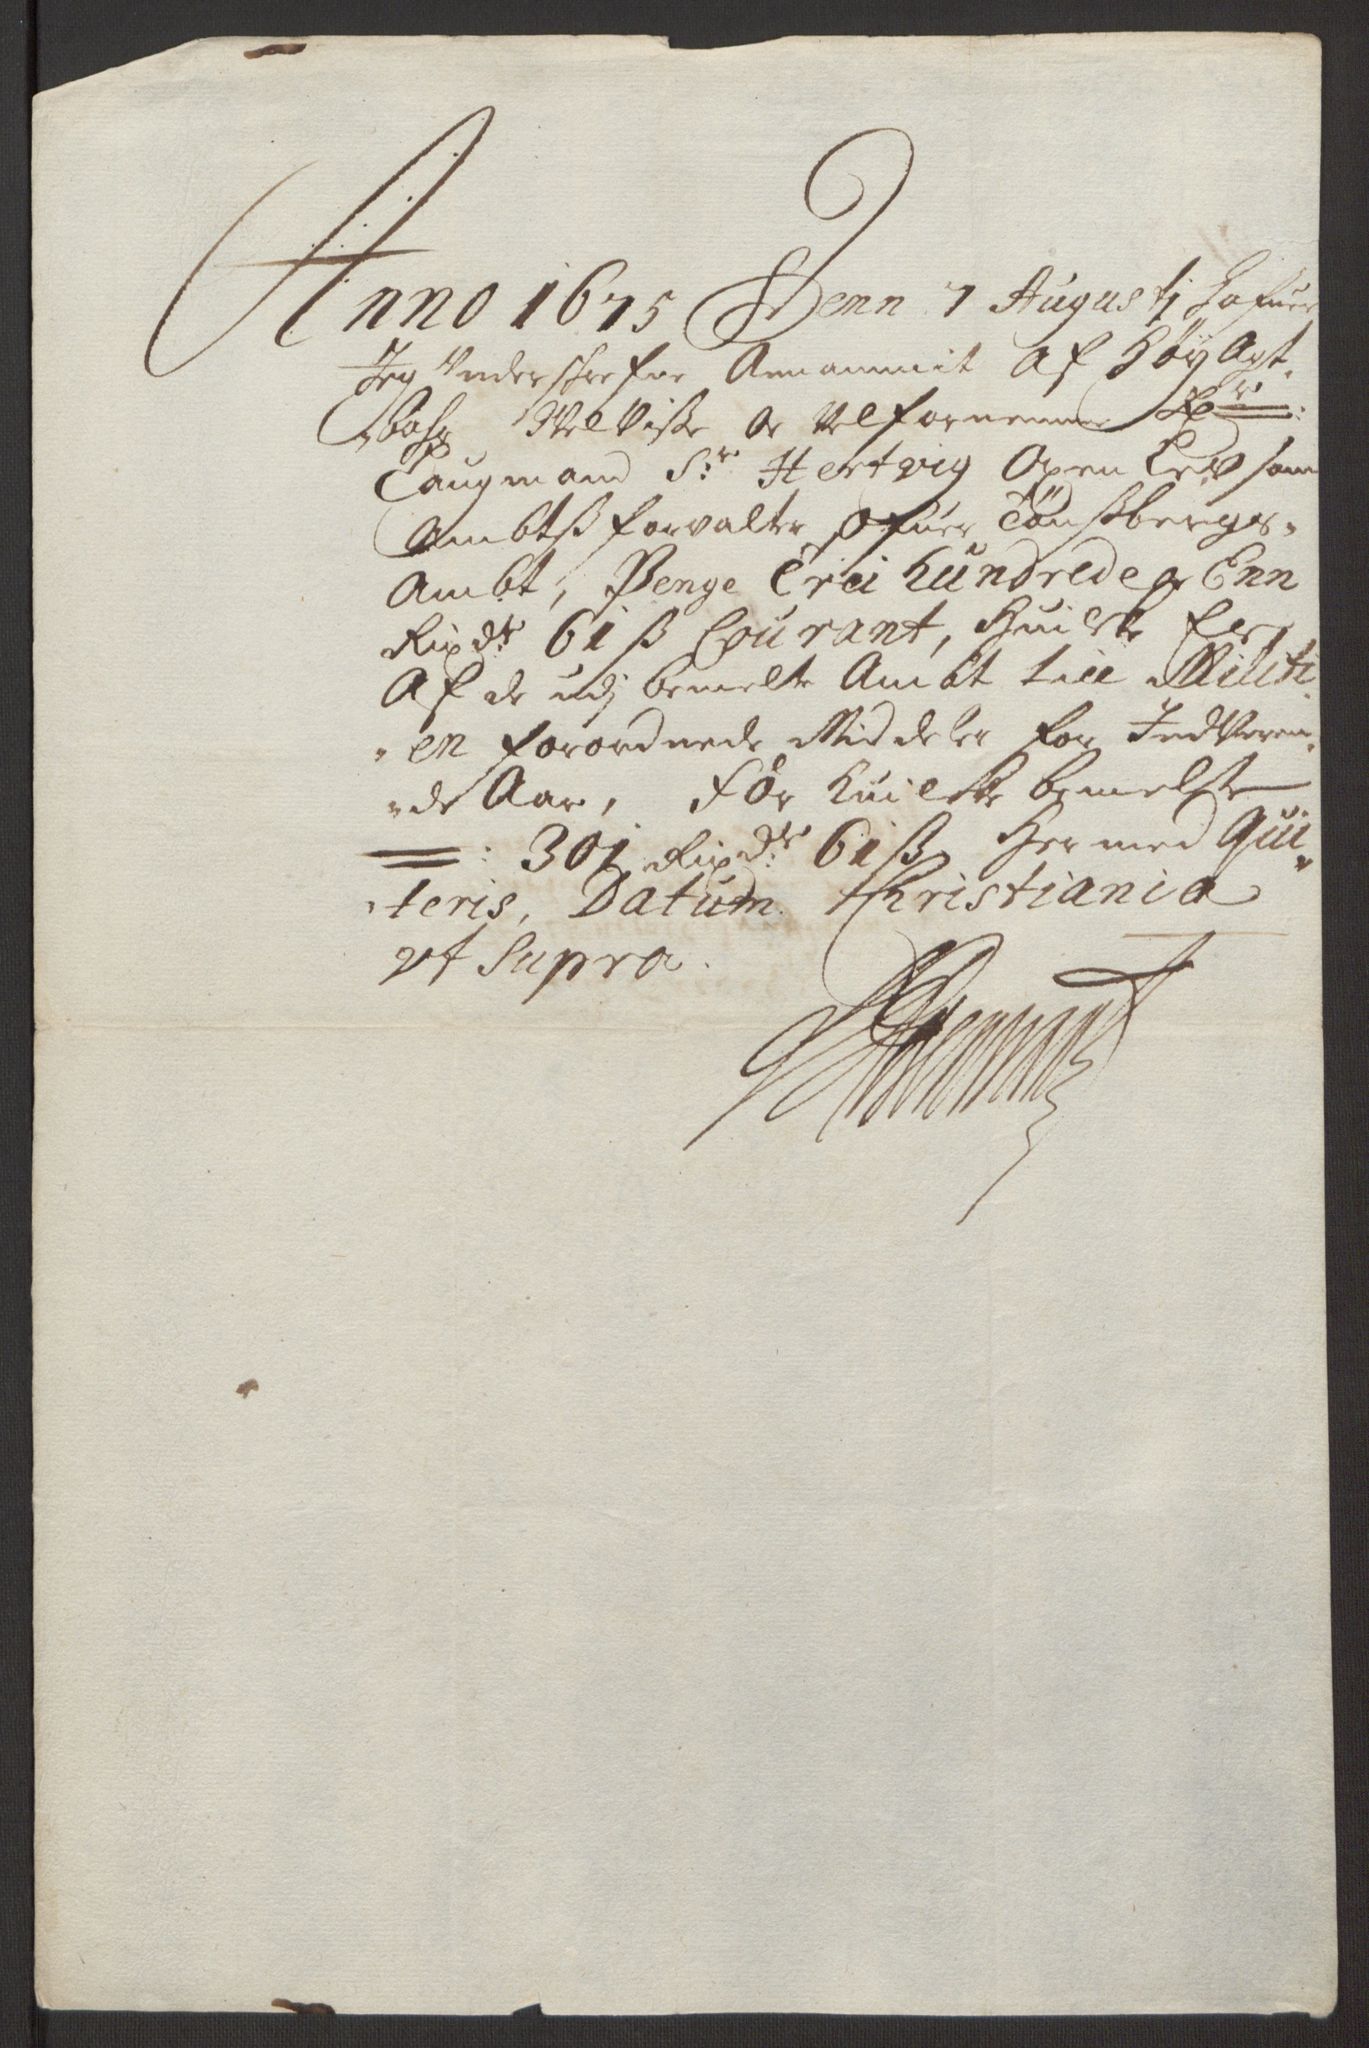 Anno 1675 Denn 7 Augustj hafuer
Jeg Underschrefne Annammit Af Høy Agt-
bahr Velviise oc Velfornemme Hr:
Laugmand Sr. Hertvig Oxen som
Ambtßforvalter ofuer Tönßbergs
Ambt, Penge Trei Hundrede oc Enn
Rixdr. 61 ß Courant, Huilcke Er
Af de udj bemelte Ambt till Militi-
en forordnede Middeler for Indverren-
de Aar, För huilcke bemelte
301 Rixdr. 61 ß Hermed Qui-
teris, Datum Christiania
ut Supra.